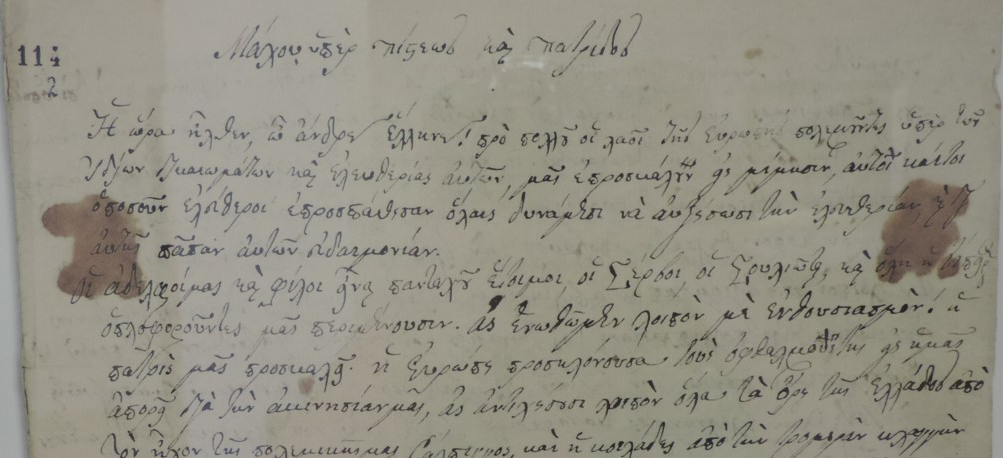 114
2
Μάχου ὑπὲρ πίστεως καὶ πατρίδος
Ἡ ὥρα ἦλθεν, ὦ ἄνδρες Ἕλληνες! πρὸ πολλοῦ οἱ λαοὶ τῆς Εὐρώπης πολεμοῦντες ὑπὲρ τῶν
ἰδίων δικαιωμάτων καὶ ἐλευθερίας αὐτῶν, μᾶς ἐπροσκάλουν εἰς μίμησιν, αὐτοὶ καίτοι
ὁπωσοῦν ἐλεύθεροι ἐπροσπάθησαν ὅλαις δυνάμεσι νὰ αὐξήσωσι τὴν ἐλευθερίαν, καὶ δι'
αὐτῆς πᾶσαν αὐτῶν εὐδαιμονίαν.
Οἱ ἀδελφοί μας καὶ φίλοι εἶναι πανταχοῦ ἕτοιμοι, οἱ Σέρβοι, οἱ Σουλιῶται, καὶ ὅλη ἡ Ἤπειρος
ὁπλοφοροῦντες μᾶς περιμένουσιν. ἂς ἑνωθῶμεν λοιπὸν μὲ ἐνθουσιασμόν! ἡ
πατρὶς μᾶς προσκαλεῖ. ἡ Εὐρώπη προσηλόνουσα τοὺς ὀφθαλμούς της εἰς ἡμᾶς
ἀπορεῖ διὰ τὴν ἀκινησίαν μας, ἂς ἀντηχήσωσι λοιπὸν ὅλα τὰ ὄρη τῆς Ἑλλάδος ἀπὸ
τὸν ἦχον τῆς πολεμικῆς μας σάλπιγγος, καὶ ἡ κοιλάδες ἀπὸ τὴν τρομερὰν κλαγγὴν